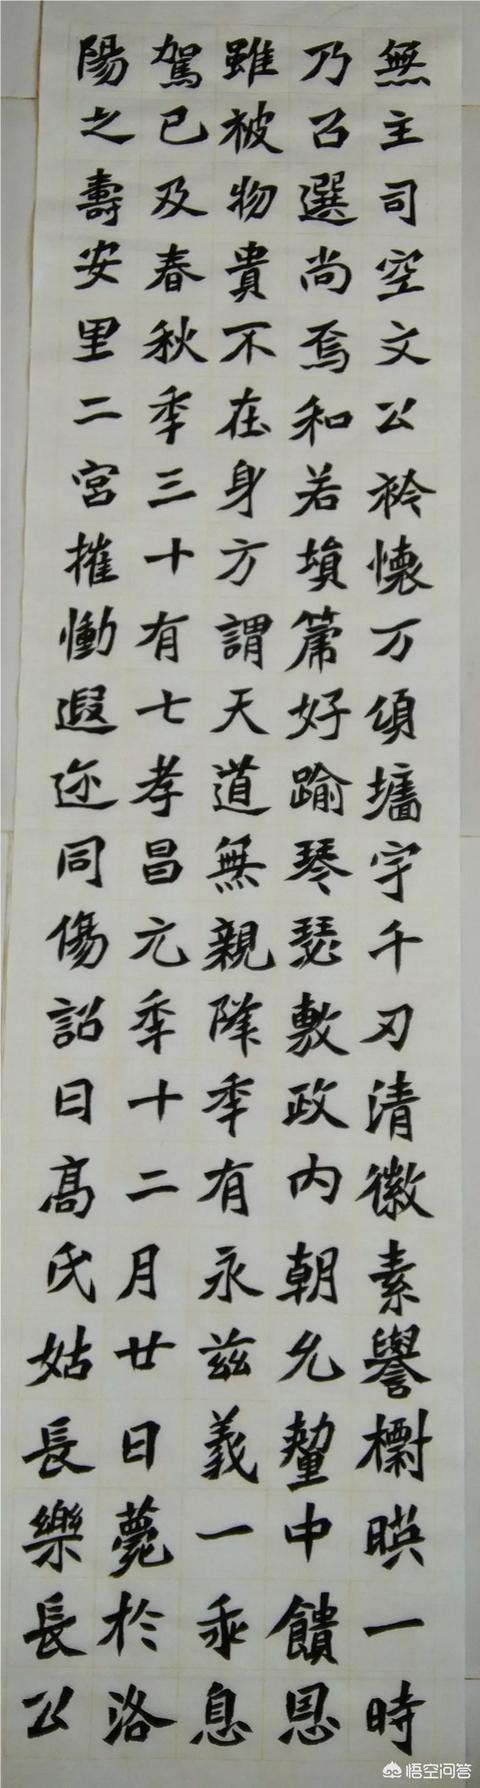 無主司空文公衿懷万頃墻宇千刃清徽素譽暎一時
乃召選尚焉和若塤篪好踰琴瑟敷政内朝允釐中饋恩
雖被物貴不在身方謂天道無親降年有永兹義一乖息
駕已及春秋年三十有七孝昌元年十二月廿日薨於洛
陽之壽安里二宮摧慟遐迩同傷詔曰高氏姑長樂長公
悟空问答